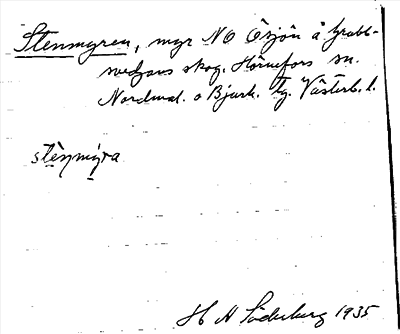 Stenmyren, myr NO Örsjön å Grubb-
nedjans skog. Hörnefors sn.
Nordmal. o Bjurh. tg. Västerb. l.
stènmýra
H H Söderberg 1935